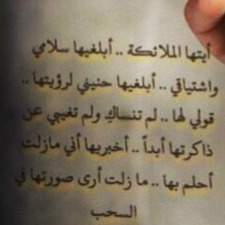 أيتها الملائكة .. أبلغيها سلامي
واشتياقي .. أبلغيها حنيني لرؤيتها ..
قولي لها .. لم تنساكِ ولم تغيبي عن
ذاكرتها أبداً .. أخبريها أني مازلت
أحلم بها .. ما زلت أرى صورتها في
السحب